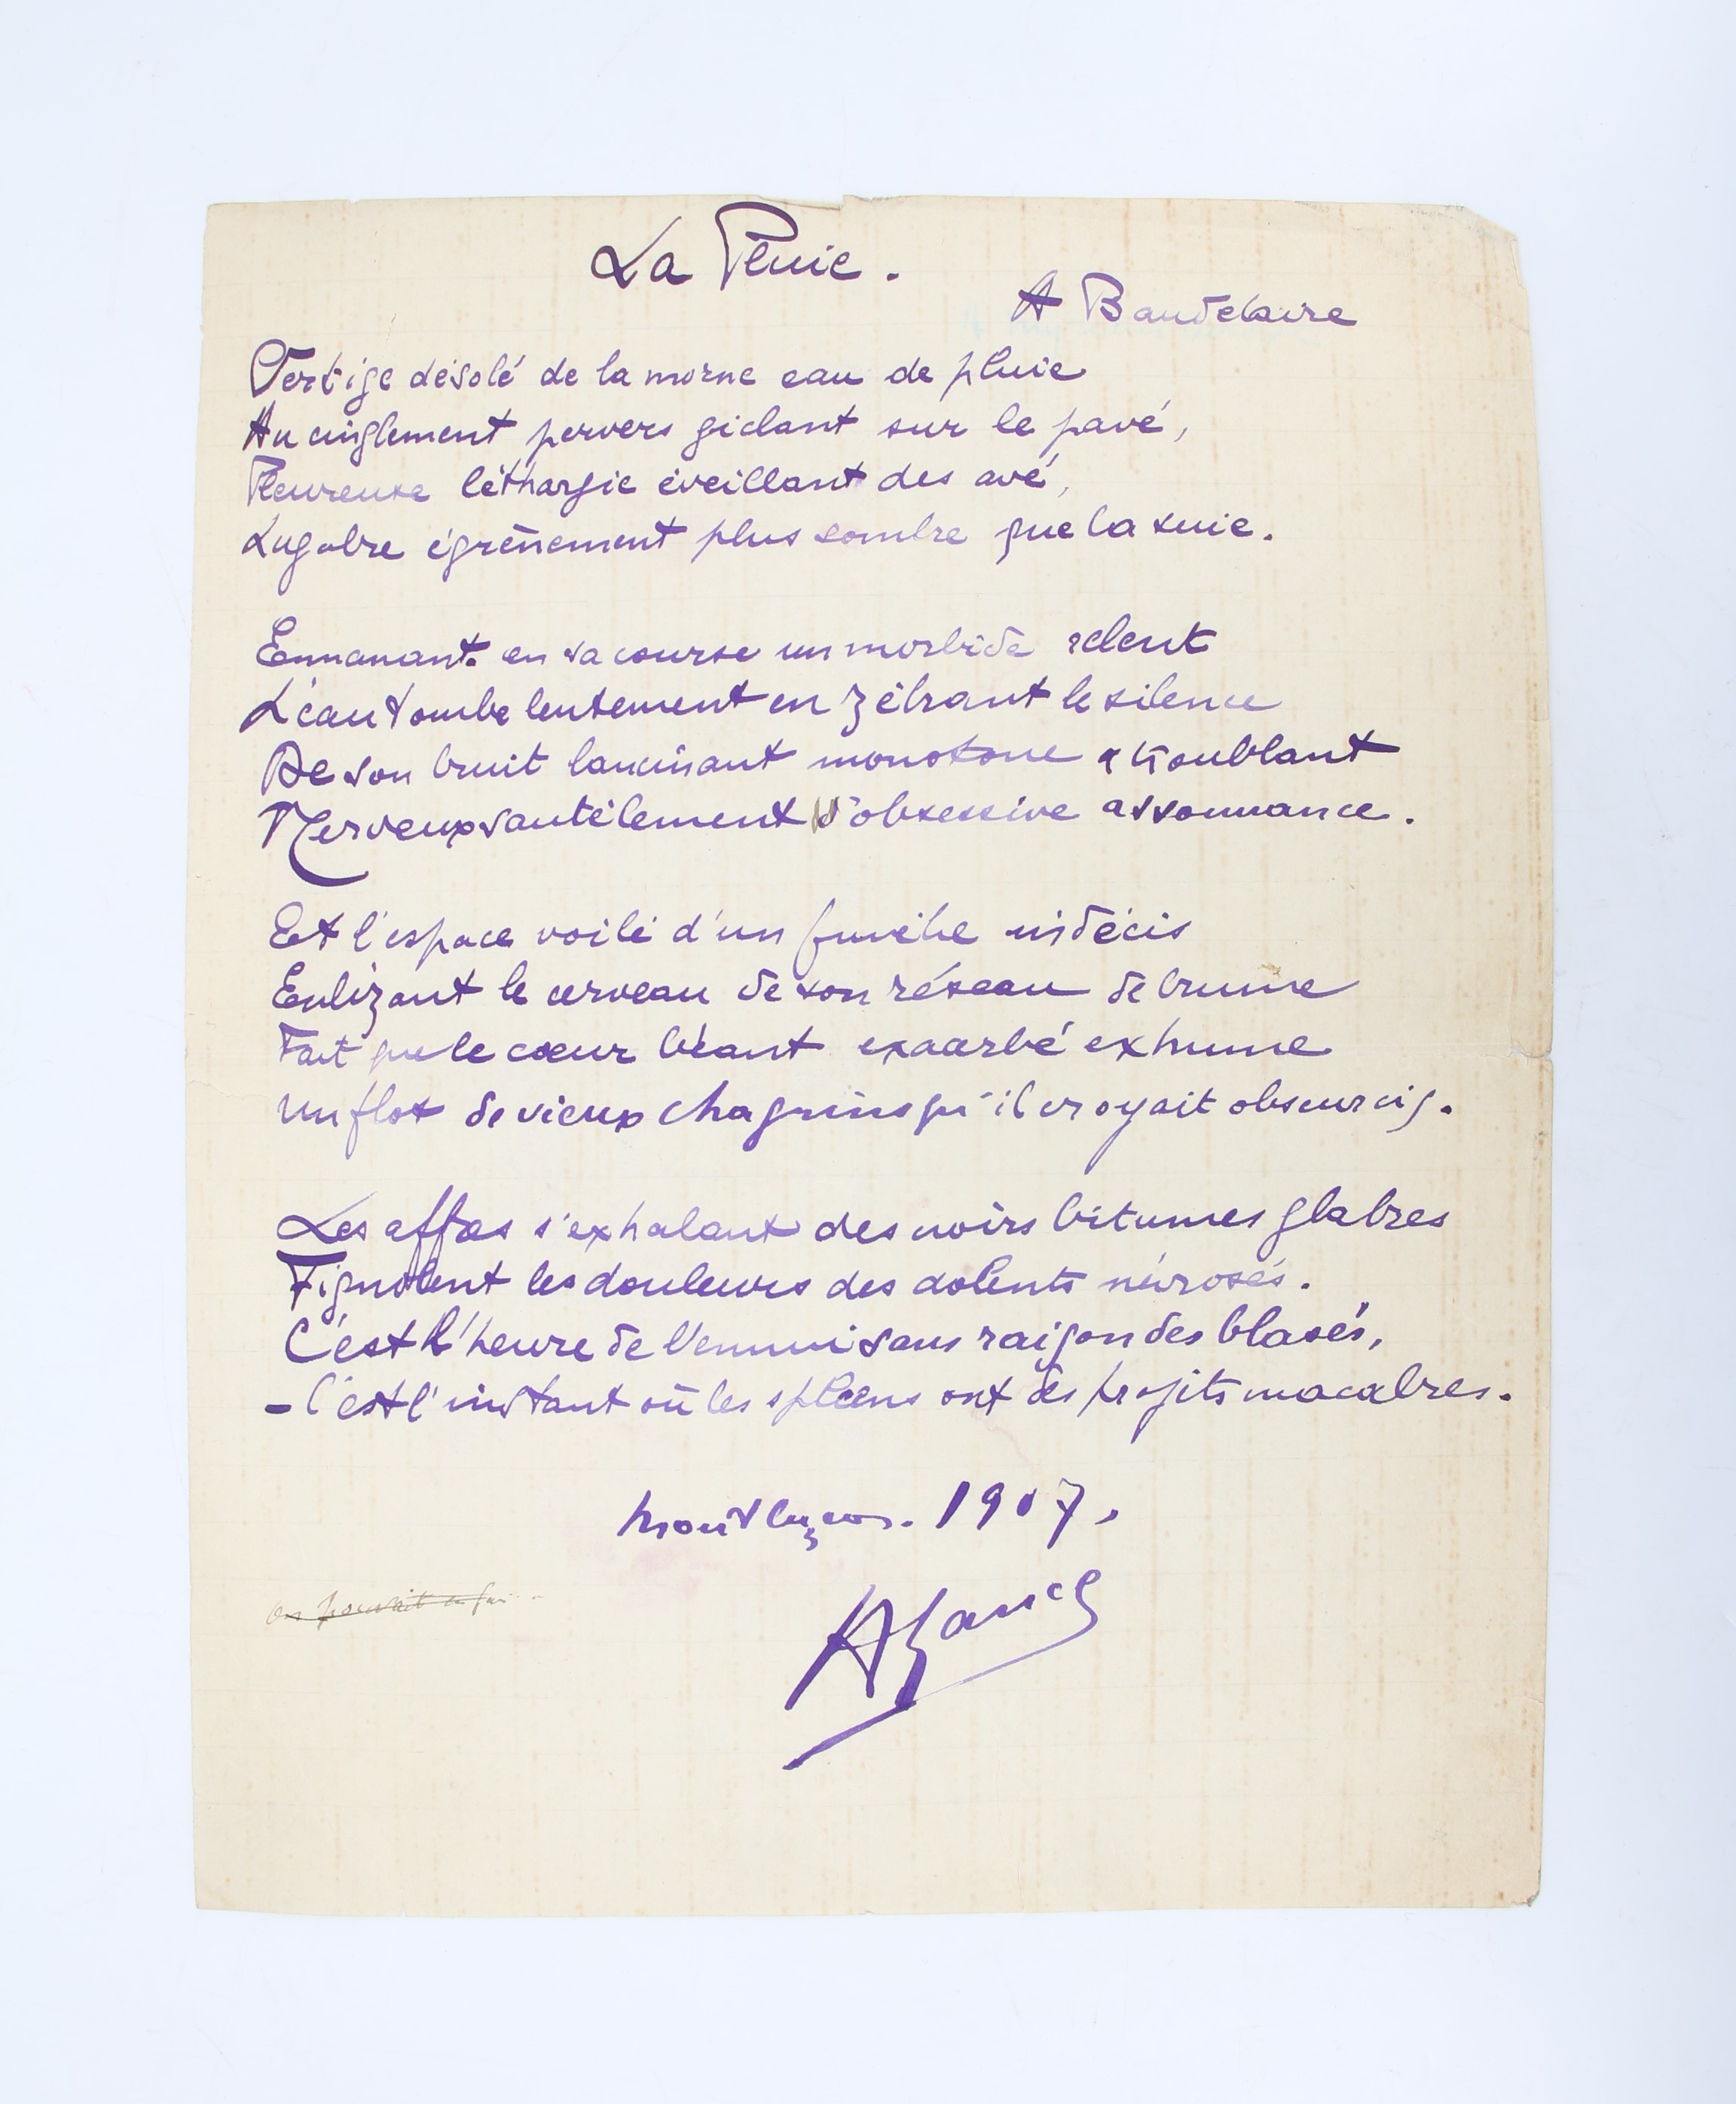 La Pluie.
A Baudelaire
Vertige désolé de la morne eau de pluie
Au cinglement pervers giclant sur le pavé,
Pleureuse léthargie éveillant des avé,
Lugubre égrènement plus sombre que la suie.
Emmanant en sa course un morbide relent
L'eau tombe lentement en zébrant le silence
De son bruit lancinant monotone & troublant
Nerveux sautèlement d'obsessive assonnance.
Et l'espace voilé d'un funèbre indécis
Enlizant le cerveau de son réseau de brume
Fait que le cœur béant exacerbé exhume
Un flot de vieux chagrins qu'il croyait obscurcis.
Les affres s'exhalant des noirs bitumes glabres
Fignolent les douleurs des dolents névrosés.
C'est l'heure de l'ennui sans raison des blasés,
- C'est l'instant où les spleens ont des projets macabres.
Montluçon. 1907.
on pouvait